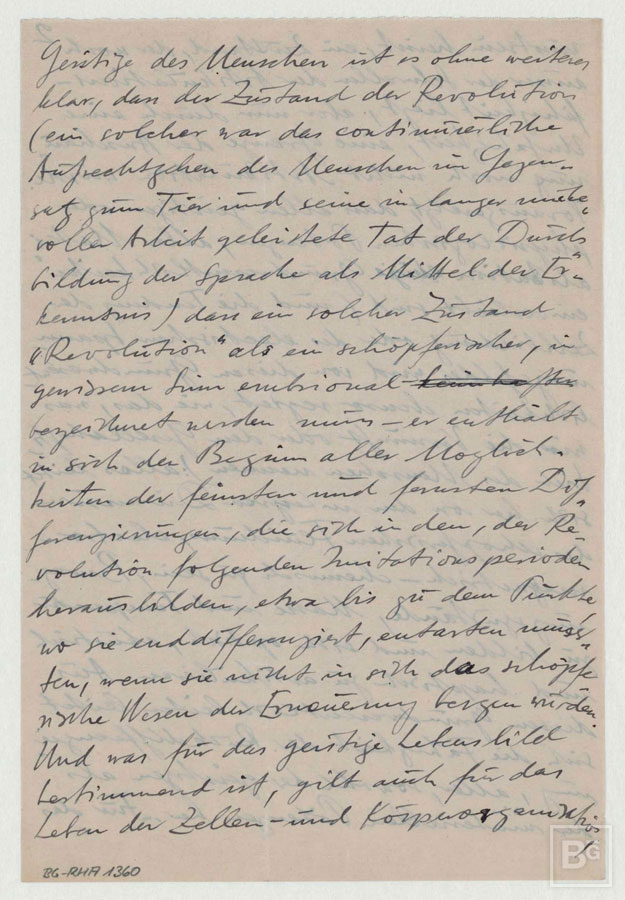 Geistige des Menschen ist es ohne weiteres
klar, dass der Zustand der Revolution
(ein solcher war das continuierliche
Aufrechtgehen des Menschen im Gegen-
satz zum Tier und seine in langer mühe-
voller Arbeit geleistete Tat der Durch
bildung der Sprache als Mittel der Er-
kenntnis) dass ein solcher Zustand
"Revolution" als ein schöpferischer, in
gewissem Sinn embrional keimhaften
bezeichnet werden muss – er enthält
in sich den Beginn aller Möglich-
keiten der feinsten und fernsten Dif-
ferenzierungen, die sich in den, der Re-
volution folgenden Imitationsperioden
herausbilden, etwa bis zu dem Punkte,
wo sie enddifferenziert, entarten müss-
ten, wenn sie nicht in sich das schöpfe
rische Wesen der Erneuerung bergen würden.
Und was für das geistige Lebensbild
bestimmend ist, gilt auch für das
Leben der Zellen- und Körperorganisation
BG-RHA 1360
BG